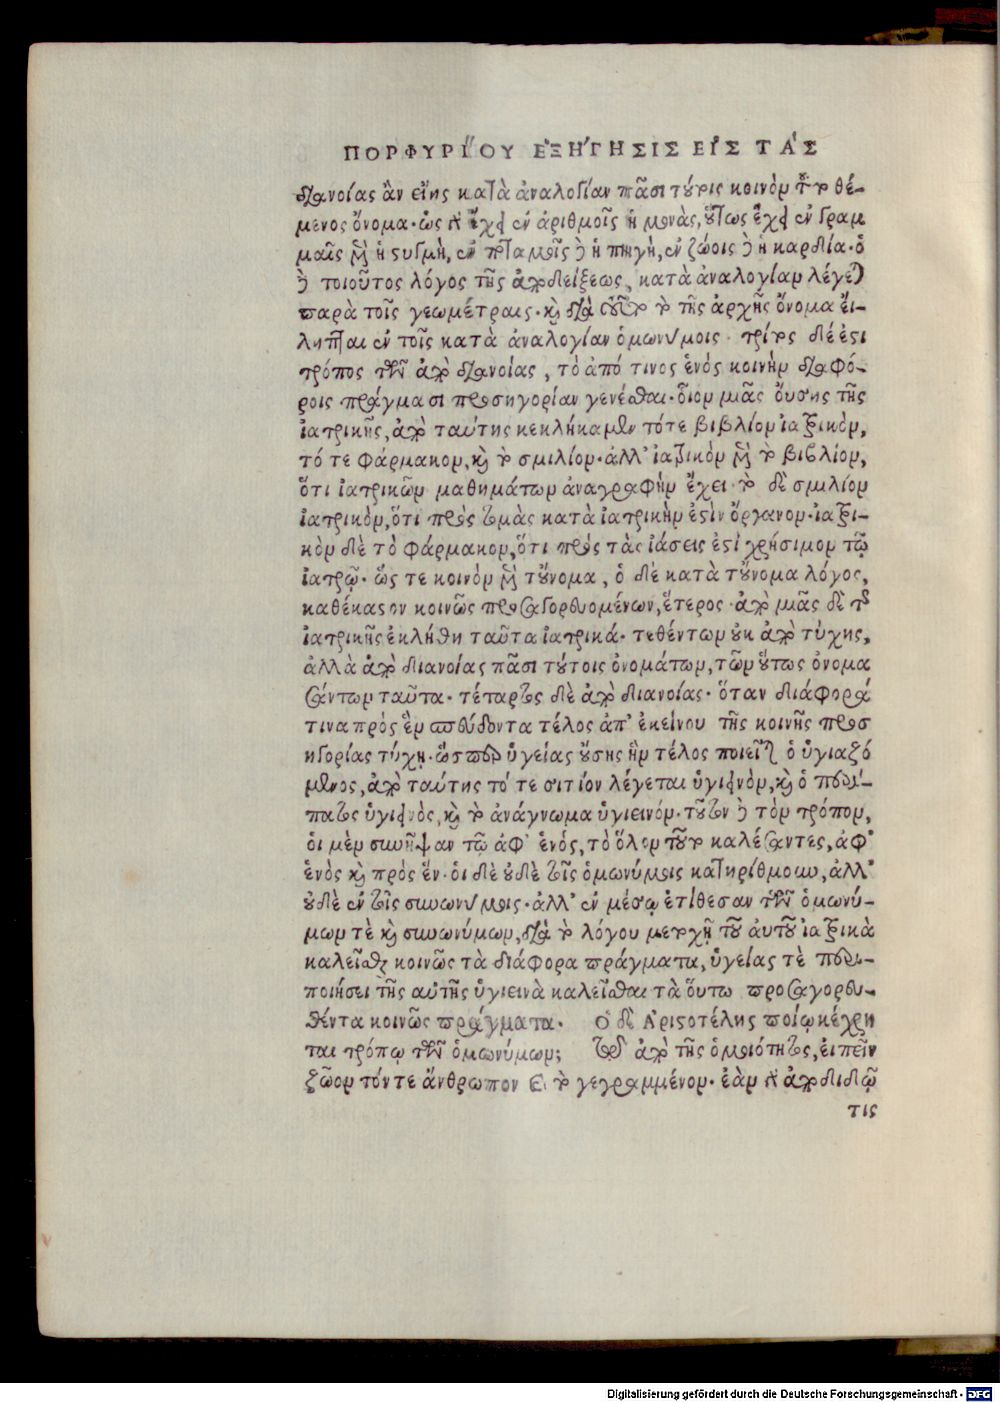 ΠΟΡΦΥΡΙ´ΟΥ ΕΞΗ´ΓΗΣΙΣ ΕΙ´Σ ΤΑ`Σ
διανοίας ἂν εἴης κατὰ ἀναλογίαν πᾶσι τούτοις κοινὸν θέ-
μενος ὄνομα· ὡς δὲ ἔχει ἐν ἀριθμοῖς ἡ μονὰς, οὕτως ἔχει ἐν γραμ
μαῖς μὲν ἡ στιγμὴ, ἐν ποταμοῖς δὲ ἡ πηγὴ, ἐν ζώοις δὲ ἡ καρδία· ὁ
δὲ τοιοῦτος λόγος τῆς ἀποδείξεως, κατὰ ἀναλογίαν λέγεται
παρὰ τοῖς γεωμέτραις· καὶ διὰ τοῦτο τὸ τῆς ἀρχῆς ὄνομα εἴ-
ληπται ἐν τοῖς κατὰ ἀναλογίαν ὁμωνύμοις· τρίτος δέ ἐστι
τρόπος τῶν ἀπὸ διανοίας, τὸ ἀπό τινος ἑνός κοινὴν διαφό-
ροις πράγμασι προσηγορίαν γενέσθαι· οἷον μιᾶς οὔσης τῆς
ἰατρικῆς, ἀπὸ ταύτης κεκλήκαμεν τότε βιβλίον ἰατρικὸν,
τό τε φάρμακον, καὶ τὸ σμιλίον· ἀλλ' ἰατρικὸν μὲν τὸ βιβλίον,
ὅτι ἰατρικῶν μαθημάτων ἀναγραφὴν ἔχει· τὸ δὲ σμιλίον
ἰατρικὸν, ὅτι πρὸς τομὰς κατὰ ἰατρικὴν ἐστὶν ὄργανον· ἰατρι-
κὸν δὲ τὸ φάρμακον, ὅτι πρὸς τὰς ἰάσεις ἐστὶ χρήσιμον τῷ
ἰατρῷ· ὥς τε κοινὸν μὲν τοὔνομα, ὁ δὲ κατὰ τοὔνομα λόγος,
καθέκαστον κοινῶς προσαγορευομένων, ἕτερος· ἀπὸ μιᾶς δὲ τῆς
ἰατρικῆς ἐκλήθη ταῦτα ἰατρικά· τεθέντων οὐκ ἀπὸ τύχης,
ἀλλὰ ἀπὸ διανοίας πᾶσι τούτοις ὀνομάτων, τῶν οὕτως ὀνομα
σάντων ταῦτα· τέταρτος δὲ ἀπὸ διανοίας· ὅταν διάφορά
τινα πρὸς ἓν σπεύδοντα τέλος ἀπ' ἐκείνου τῆς κοινῆς προσ
ηγορίας τύχῃ· ὥσπερ ὑγείας οὔσης ἣν τέλος ποιεῖται ὁ ὑγιαζό
μενος, ἀπὸ ταύτης τό τε σιτίον λέγεται ὑγιεινὸν, καὶ ὁ περί-
πατος ὑγιεινὸς, καὶ τὸ ἀνάγνωμα ὑγιεινόν· τοῦτον δὲ τὸν τρόπον,
οἱ μὲν συνῆψαν τῷ ἀφ' ἑνός, τὸ ὅλον τοῦτο καλέσαντες, ἀφ'
ἑνὸς καὶ πρὸς ἕν· οἱ δὲ οὐδὲ τοῖς ὁμωνύμοις κατηρίθμουν, ἀλλ'
οὐδὲ ἐν τοῖς συνωνύμοις· ἀλλ' ἐν μέσῳ ἐτίθεσαν τῶν ὁμωνύ-
μων τὲ καὶ συνωνύμων, διὰ τὸ λόγου μετοχῇ τοῦ αὐτοῦ ἰατρικὰ
καλεῖσθαι κοινῶς τὰ διάφορα πράγματα, ὑγείας τὲ περι-
ποιήσει τῆς αὐτῆς ὑγιεινὰ καλεῖσθαι τὰ οὕτω προσαγορευ-
θέντα κοινῶς πράγματα· Ὁ δὲ Ἀριστοτέλης ποίῳ κέχρη
ται τρόπῳ τῶν ὁμωνύμων; τῷ ἀπὸ τῆς ὁμοιότητος, εἰπεῖν
ζῶον τόν τε ἄνθρωπον καὶ τὸ γεγραμμένον· ἐὰν δὲ ἀποδιδῷ
τις
Digitalisierung gefördert durch die Deutsche Forschungsgemeinschaft - DFG